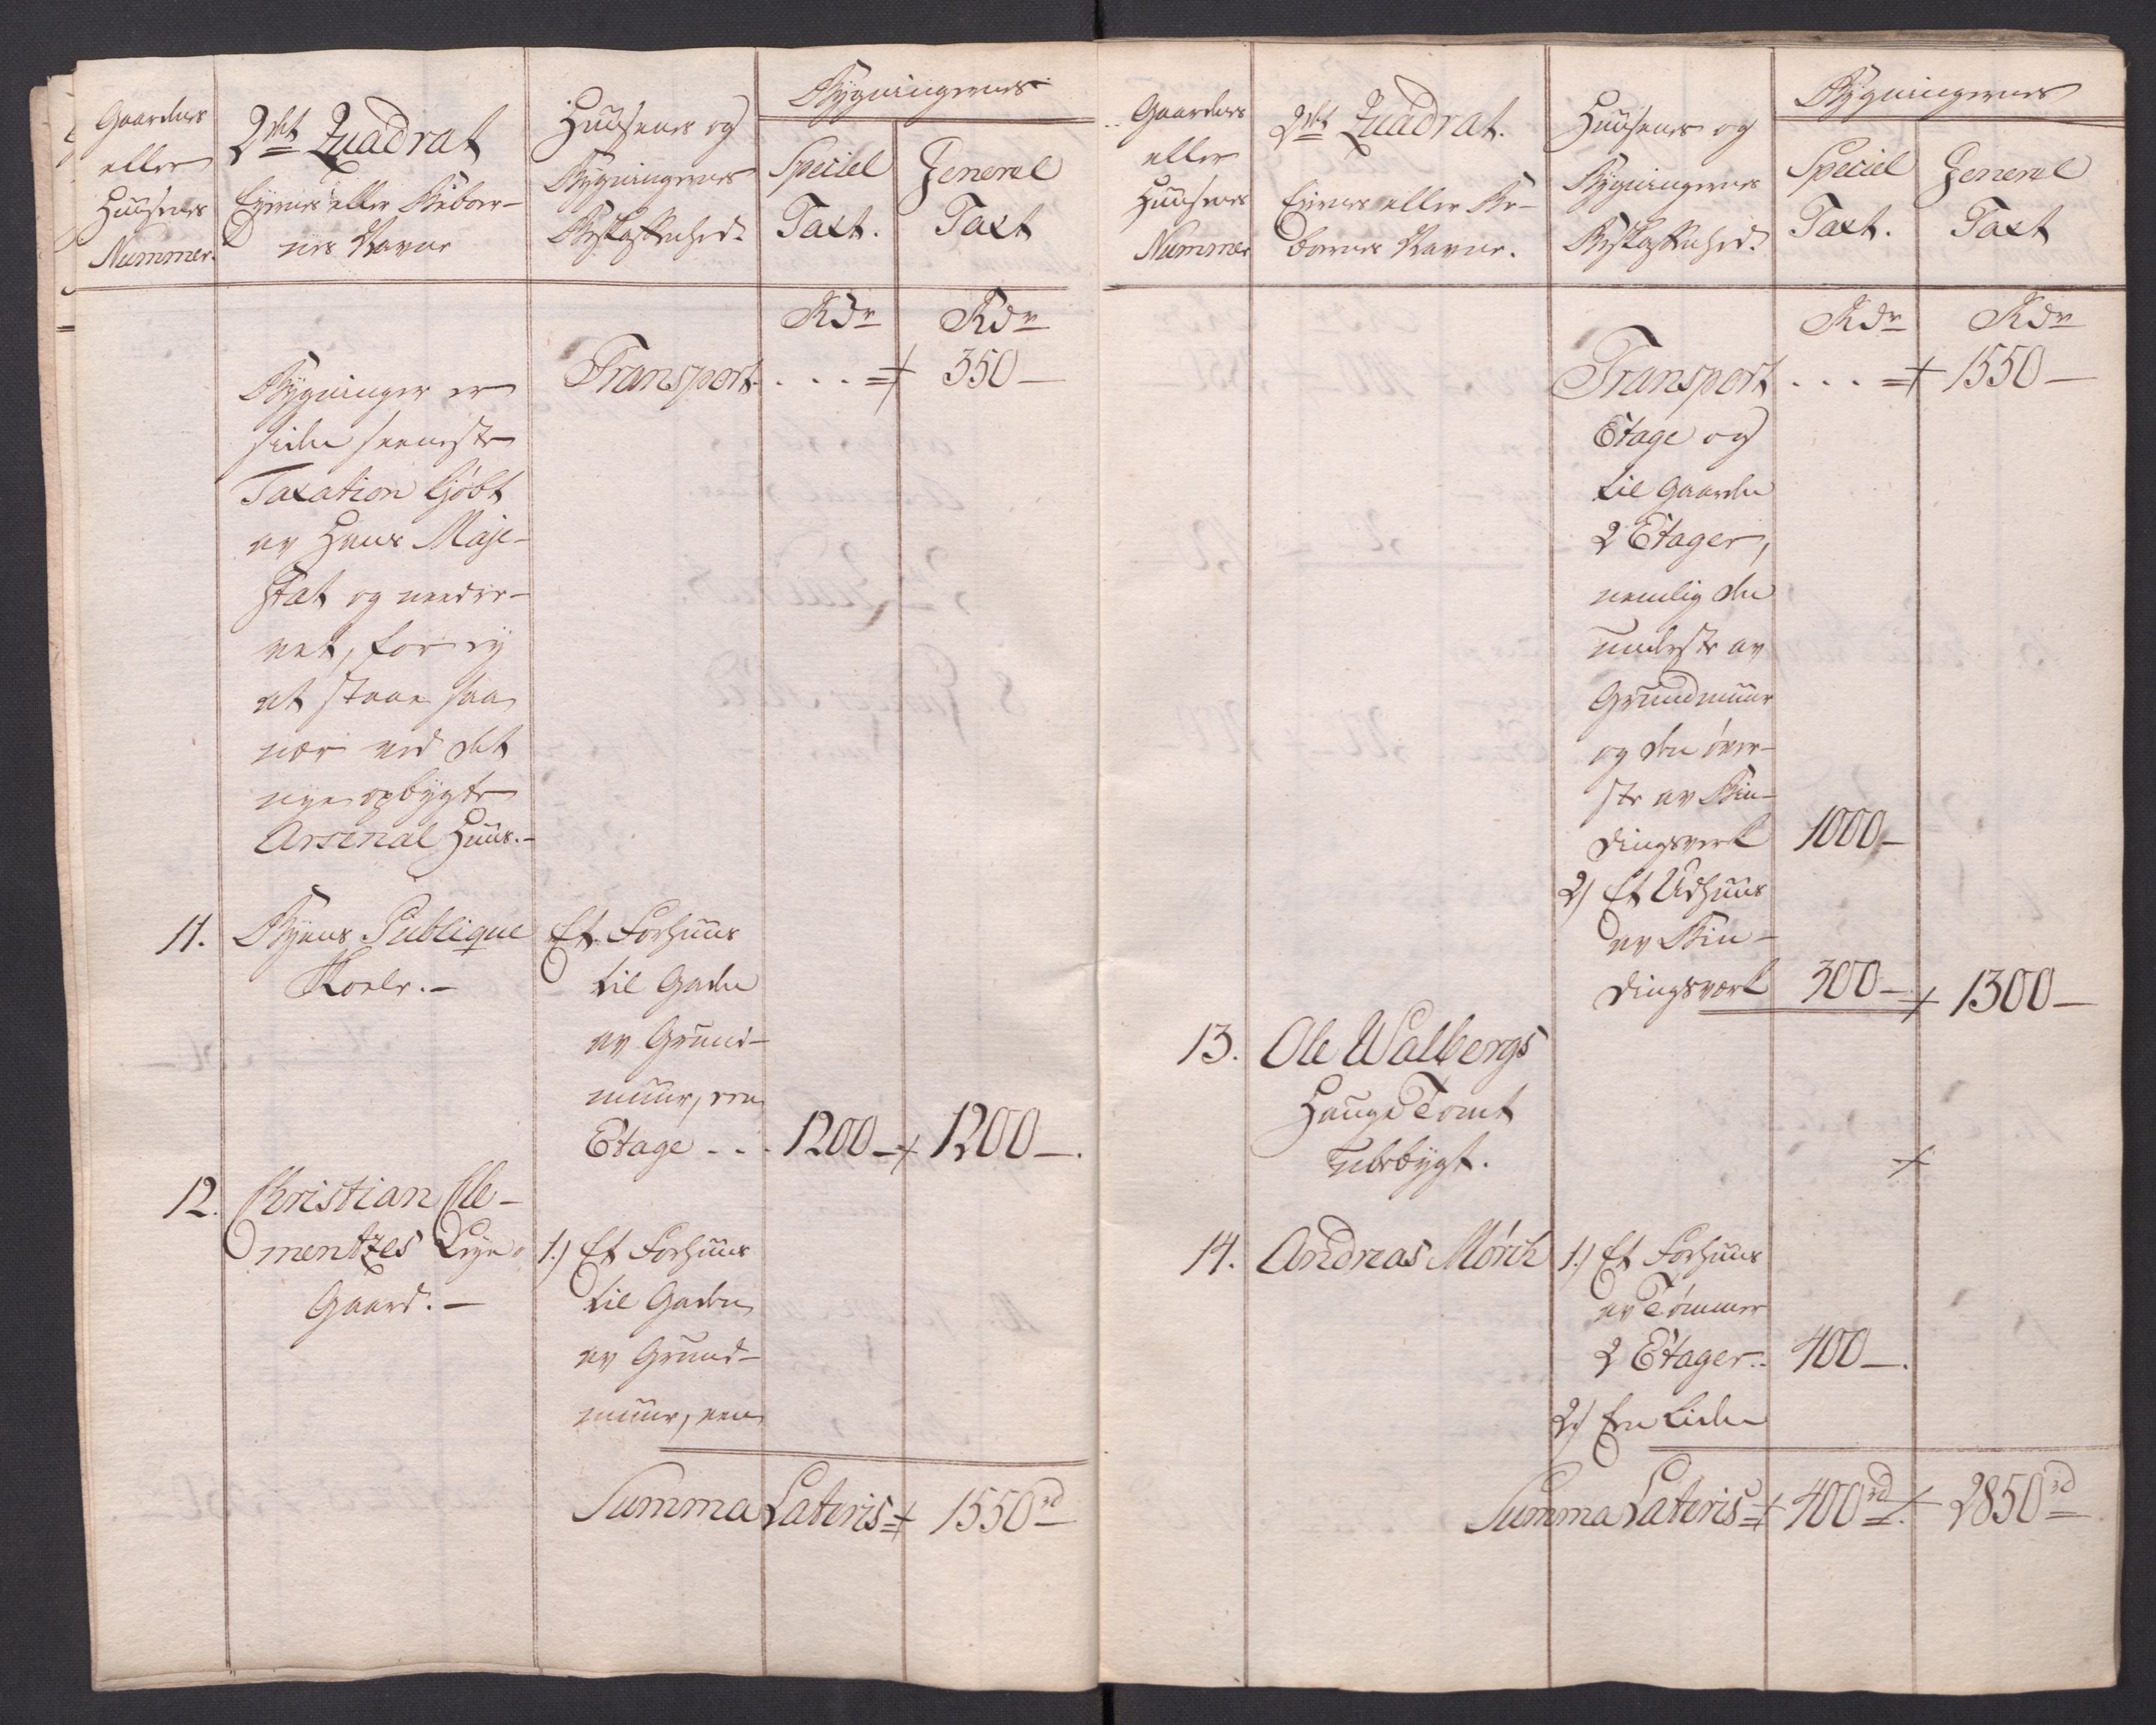 Gaardens
eller
Huusenes
Nummer.
2det Quadrat
Eyeres eller Beboer-
nes Navne
Huusenes og
Bygningernes
Beskaffenhed.
Bygningernes
Speciel
Taxt.
General
Taxt
Rdr Rdr
Transport. . . . = 350 —
Bygninger er
siden seeneste
Taxation kjøbt
av Hans Maje-
stæt og needre-
vet, for ey
at staae saa
nær ved det
nye opbygte
Arsenal Huus. —
11. Byens Publique
Skoele. —
Et Forhuus
til Gaden
av Grund-
muur, een
Etage . . . 1200 — 1200 —.
12. Christian Cle-
mentzes Leye-
Gaard. —
1.) Et Forhuus
til Gaden
av Grund-
muur, een
Summa Lateris = 1550 rd
Gaardens
eller
Huusenes
Nummer
2det Quadrat.
Eieres eller Be-
boernes Navne.
Huusenes og
Bygningernes
Beskaffenhed.
Bygningernes
Speciel
Taxt.
General
Taxt
Rdr Rdr
Transport . . . = 1550 —
Etage og
til Gaarden
2 Etager,
nemlig den
underste av
Grundmuur
og den øver-
ste av Bin-
dingsverk 1000 —
2) Et Udhuus
av Bin-
dingsverk 300 — 1300 —
13. Ole Walbergs
Hauge Tomt
ubebygt.
14. Andreas Mörch
1.) Et Forhuus
av Tømmer
2 Etager.. 400 —.
2.) Een liden
Summa Lateris = 400 rd 2850 rd